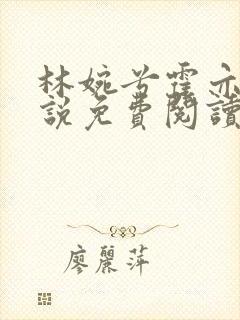 林婉兮霍亦
說免費閱讀
廖麗萍